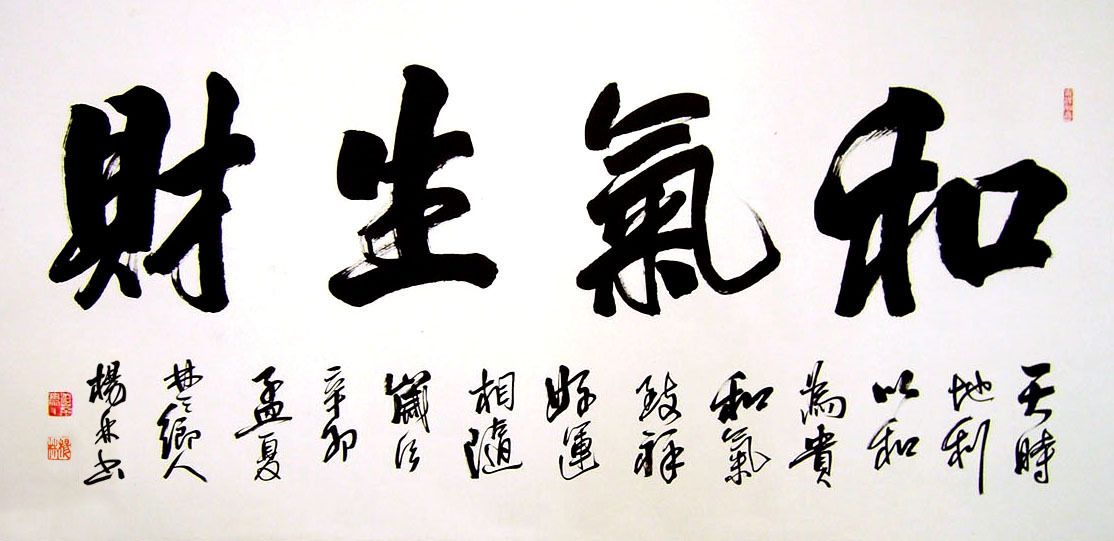 和氣生財
天時
地利
以和
為貴
和氣
致祥
好運
相隨
歲次
辛卯
孟夏
楚鄉人
楊林書